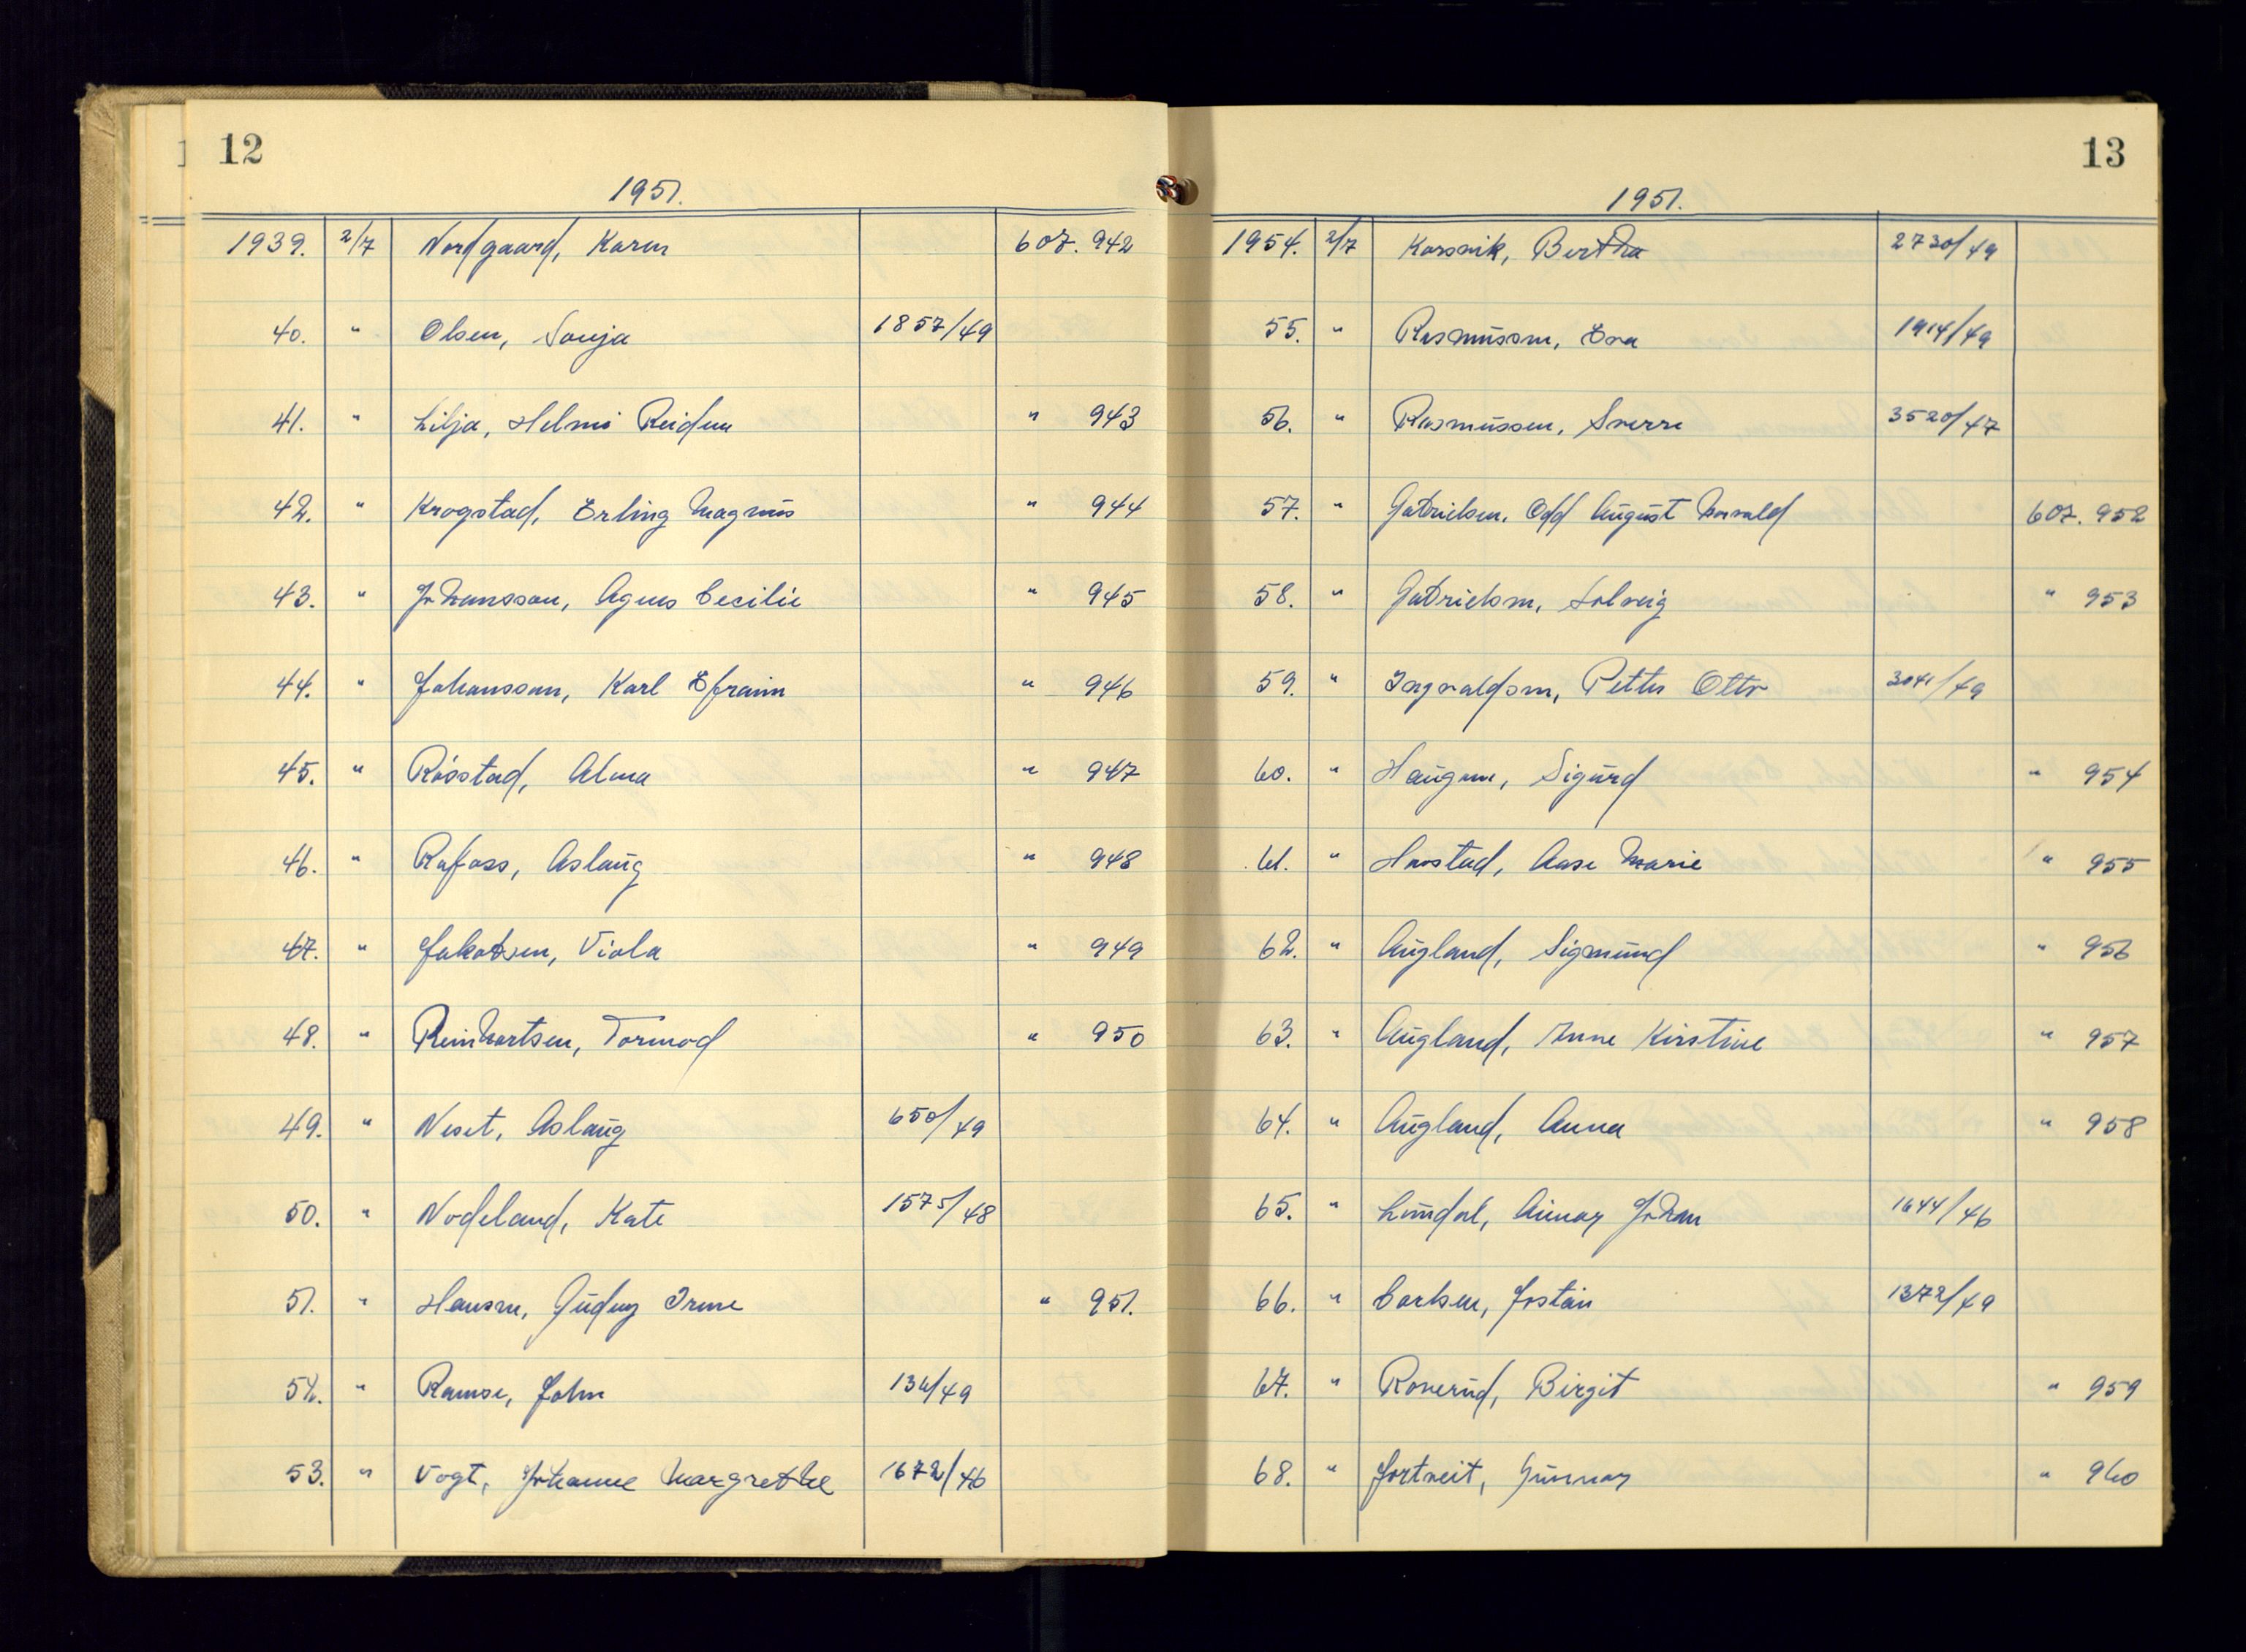 12
1951.
1939. 2/7 Nordgaard, Karen 607.942
40. " Olsen, Sonja 1857/49
41. " Lilja, Helmi Reidun " 943
42. " Krogstad, Erling Magnus " 944
43. " Johansson, Agnes Cecilie " 945
44. " Johansson, Karl Efraim " 946
45. " Rösstad, Alma " 947
46. " Rafoss, Aslaug " 948
47. " Jakobsen, Viola " 949
48. " Reinhartsen, Tormod " 950
49. " Neset, Aslaug 650/49
50. " Nodeland, Kate 1575/48
51. " Hansen, Gudny Irene " 951.
52. " Ramse, John 136/49
53. " Vogt, Johanne Margrethe 1672/46
13
1951.
1954. 2/7 Korsvik, Bertha 2730/49
55. " Rasmussen, Eva 1914/49
56. " Rasmussen, Sverre 3520/47
57. " Gabrielsen, Odd August Norvald 607.952
58. " Gabrielsen, Solveig " 953
59. " Ingvaldsen, Petter Otto 3041/49
60. " Haugen, Sigurd " 954
61. " Hovstad, Aase Marie " 955
62. " Augland, Sigmund " 956
63. " Augland, Anne Kirstine " 957
64. " Augland, Anna " 958
65. " Lundal, Einar Johan 1644/46
66. " Carlsen, Jostein 1372/49
67. " Roverud, Birgit " 959
68. " Jortveit, Gunnar " 960